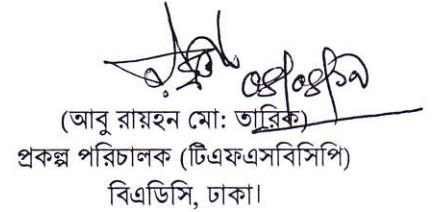 ০৪/০৪/১৯
(আবু রায়হন মো: তারিক)
প্রকল্প পরিচালক (টিএফএসবিসিপি)
বিএডিসি, ঢাকা।